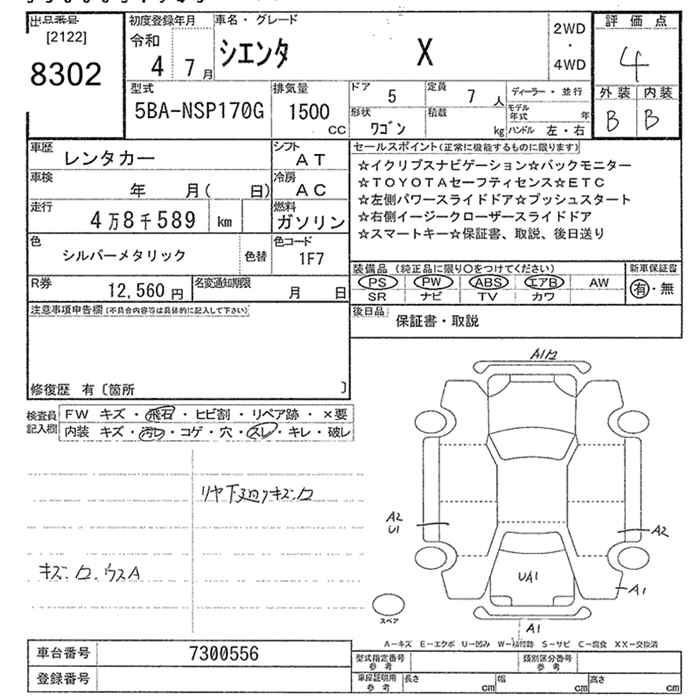 出品番号
[2122]
8302
初度登録年月
令和
4 7月
車名・グレード
シエンタ X
2WD
・
4WD
評価点
4
外装 内装
B B
型式
5BA-NSP170G
排気量
1500
CC
ドア 5
定員 7人
ディーラー・並行
形状
ワゴン
積載
kg
モデル年式 年
ハンドル 左・右
車歴 レンタカー
シフト AT
車検 年 月( 日)
冷房 AC
走行 4万8千589 km
燃料 ガソリン
色 シルバーメタリック 色替
色コード 1F7
R券 12,560円
名変通知期限 月 日
セールスポイント(正常に機能するものに限ります)
☆イクリプスナビゲーション☆バックモニター
☆TOYOTAセーフティセンス☆ETC
☆左側パワースライドドア☆プッシュスタート
☆右側イージークローザースライドドア
☆スマートキー☆保証書、取説、後日送り
装備品(純正品に限り○をつけてください)
PS PW ABS エアB AW
SR ナビ TV カワ
新車保証書
有・無
後日品 保証書・取説
注意事項申告欄(不具合内容等は具体的に記入して下さい)
修復歴 有〔箇所 〕
検査員記入欄
FW キズ・飛石・ヒビ割・リペア跡・×要
内装 キズ・汚レ・コゲ・穴・スレ・キレ・破レ
リヤ下廻りキズ.ワ
キズ.ワ.ウスA
A2
U1
A2
UA1
A1
A1
スペア
A-キズ E-エクボ U-凹み W-補修跡 S-サビ C-腐食 XX-交換済
車台番号 7300556
登録番号
型式指定番号
参考
類別区分番号
参考
車庫証明用
参考
長さ cm
幅 cm
高さ cm